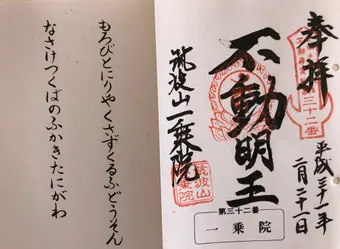 奉拝
平成三十一年
二月二十一日
不動明王
筑波山一乗院
第三十二番
一乗院
三十二番
もろびとにりやくさずくるふどうそん
なさけつくばのふかきたにがわ